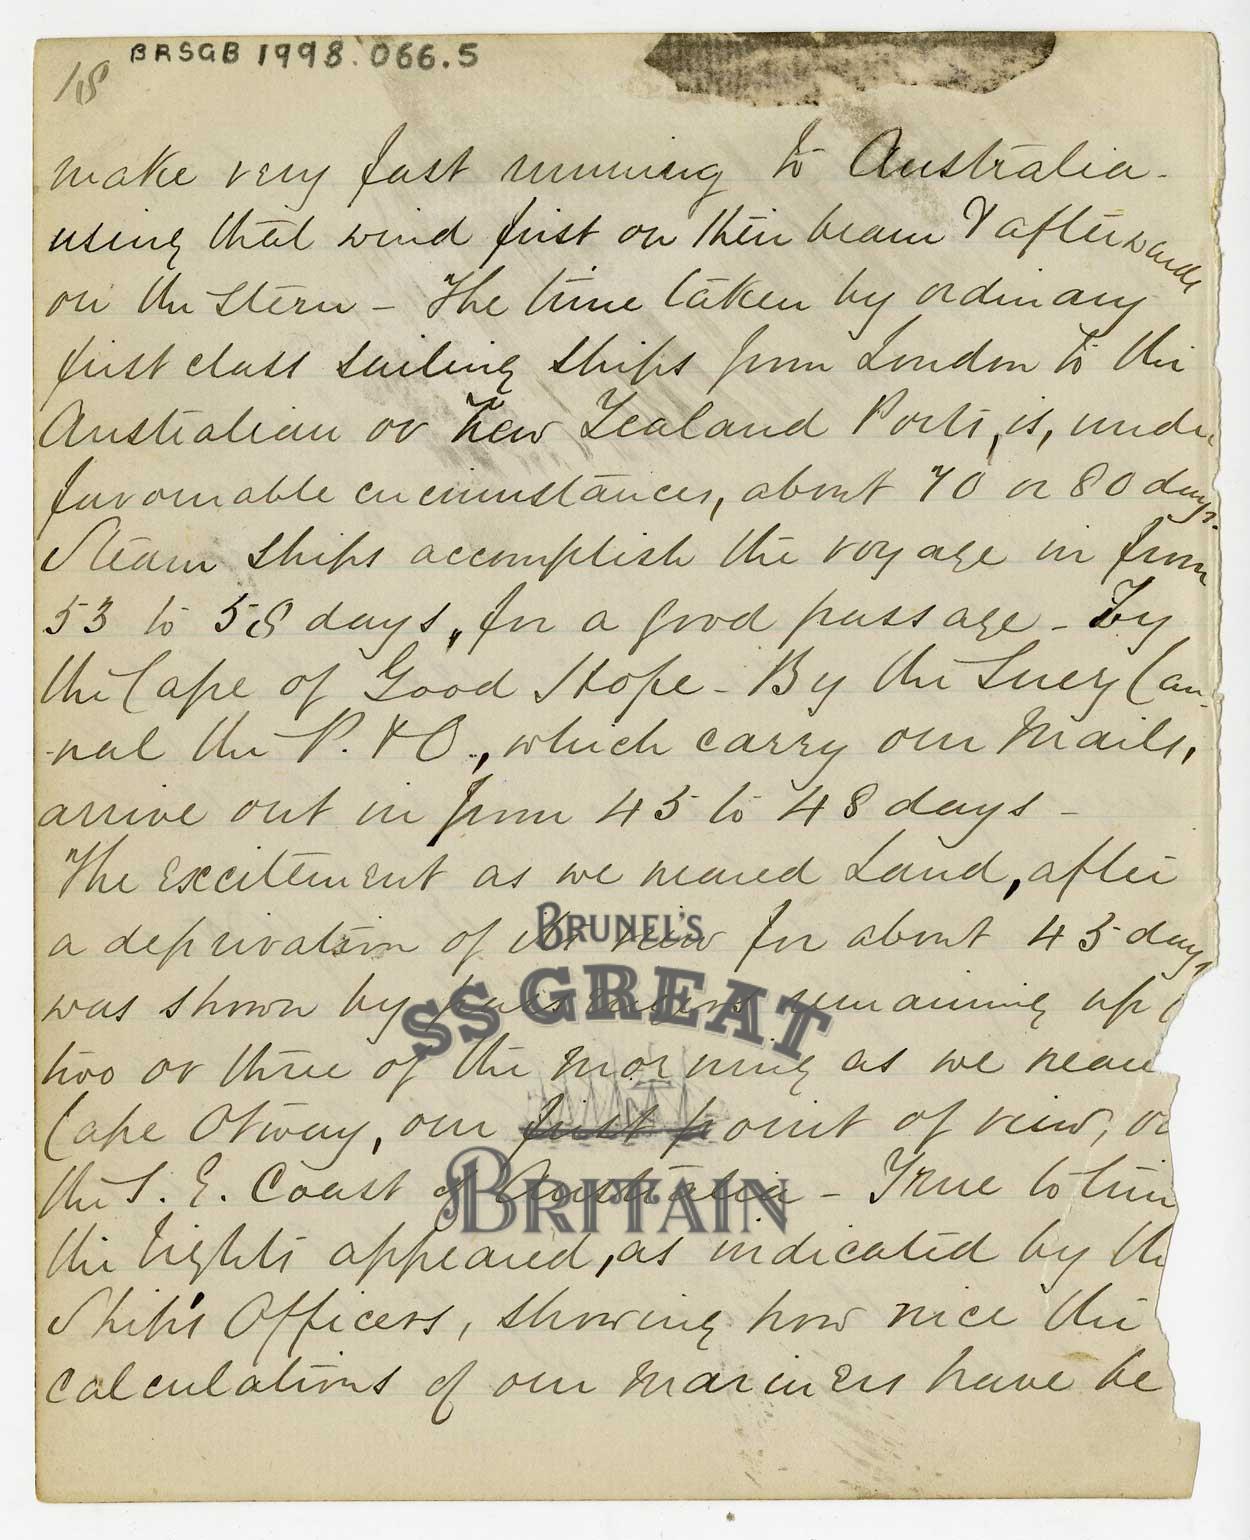 BRSGB 1998.066.5
18
make very fast running to Australia -
using that wind first on their beam & afterwards
on the Stern - The time taken by ordinary
first class sailing ships from London to the
Australian or New Zealand Ports, is, under
favourable circumstances, about 70 or 80 days.
Steam ships accomplish the voyage in from
53 to 58 days, for a good passage - by
the Cape of Good Hope - By the Suez Can-
-nal the P. & O., which carry our Mails,
arrive out in from 45 to 48 days -
The excitement as we neared Land, after
a deprivation of its view for about 45 days
was shown by passengers remaining up
two or three of the morning as we near
Cape Otway, our first point of view, on
the S. E. Coast of Australia - True to tim
the lights appeared, as indicated by th
Ship's Officers, showing how nice the
calculations of our mariners have be
BRUNEL'S
SS GREAT
BRITAIN